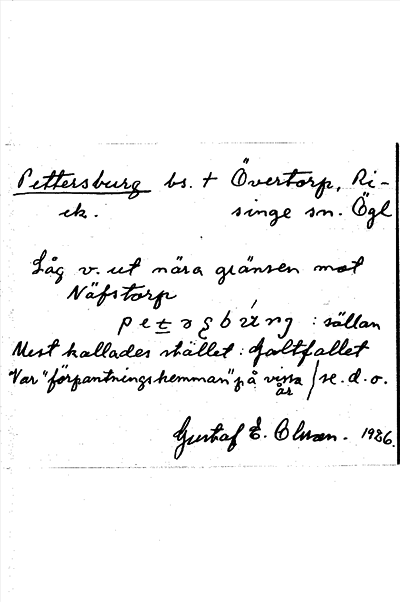 Pettersburg bs. + Övertorp, Ri-
ek. singe sn. Ögl
Låg v. ut nära gränsen mot
Näfstorp
: sällan
Mest kallades stället: Galtfallet
Var "förpantningshemman" på vissa år / se. d. o.
Gustaf E. Olsson. 1926.